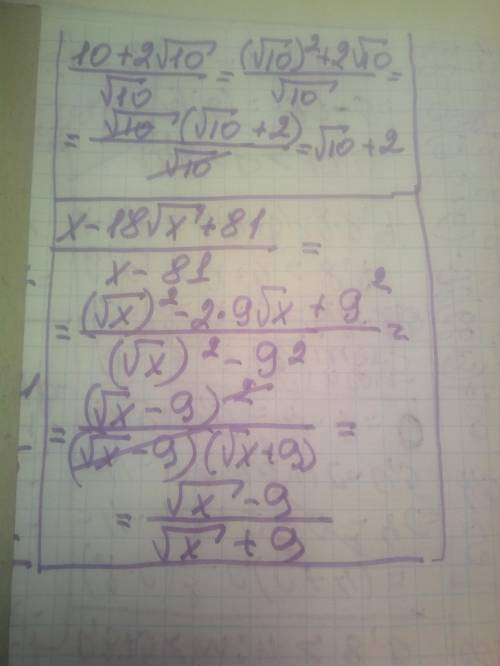 (10+2√10)/√10 = ((√10)²+2√10)/√10 =
= (√10 (√10 +2))/√10 = √10 +2
(x-18√x+81)/(x-81) =
= ((√x)²-2·9√x+9²)/((√x)²-9²) =
= (√x-9)²/((√x-9)(√x+9)) =
= (√x-9)/(√x+9)